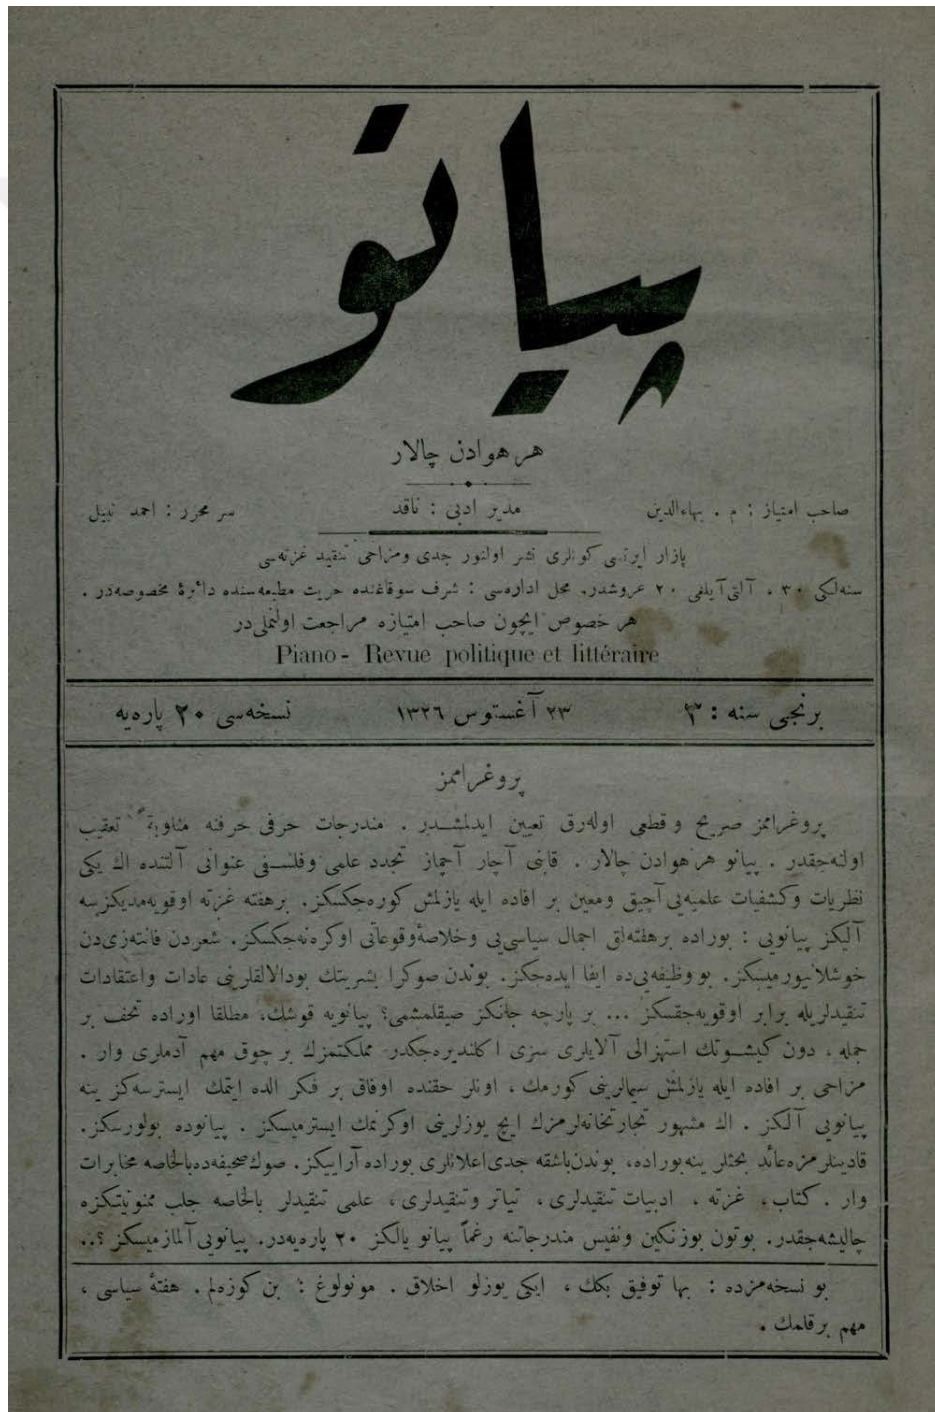 پيانو
هر هوادن چالار
صاحب امتياز : م . بهاءالدين مدير ادبى : ناقد سر محرر : احمد نبيل
پازار ايرتسى كونلرى نشر اولنور جدى ومزاحى تنقيد غزته‌سى
سنه‌لكى ٣٠ ، آلتى آيلغى ٢٠ غروشدر. محل اداره‌سى : شرف سوقاغنده حريت مطبعه‌سنده دائرهٔ مخصوصه‌در .
هر خصوص ايچون صاحب امتيازه مراجعت اولنملى‌در
Piano - Revue politique et littéraire
برنجى سنه : ٣ ٢٣ آغستوس ١٣٢٦ نسخه‌سى ٢٠ پاره‌يه
پروغراممز
پروغرامز صريح و قطعى اوله‌رق تعيين ايدلمشدر . مندرجات حرفى حرفنه تعقيب
اولنه‌جقدر . پيانو هر هوادن چالار . قاپى آچار آچماز تجدد علمى وفلسفى عنوانى آلتنده اك يكى
نظريات وكشفيات علميه‌يى آچيق ومعين بر افاده ايله يازلمش كوره‌جكسكز. برهفته غزته اوقويه‌مديكزسه
آليكز پيانويى : بوراده برهفته‌لق اجمال سياسى‌يى وخلاصهٔ وقوعاتى اوكره‌نه‌جكسكز. شعردن فانته‌زى‌دن
خوشلانيورميسكز. بو وظيفه‌يى‌ده ايفا ايده‌جكز. بوندن صوكرا بشريتك بودالالقلرينى عادات واعتقادات
تنقيدلريله برابر اوقويه‌جقسكز ... بر پارچه جانكز صيقلمشمى؟ پيانويه قوشك، مطلقا اوراده تحف بر
جمله ، دون كيشوتك استهزالى آلايلرى سزى اكلنديره‌جكدر مملكتمزك بر چوق مهم آدملرى وار .
مزاحى بر افاده ايله يازلمش سيمالرينى كورمك ، اونلر حقنده اوفاق بر فكر الده ايتمك ايسترسه‌كز ينه
پيانويى آلكز . اك مشهور تجارتخانه‌لرمزك ايچ يوزلرينى اوكرنمك ايسترميسكز . پيانوده بولورسكز.
قادينلرمزه عائد بحثلر ينه بوراده، بوندن باشقه جدى اعلانلرى بوراده آراييكز. صوك صحيفه‌ده بالخاصه مخابرات
وار . كتاب، غزته ، ادبيات تنقيدلرى ، تياتر وتنقيدلرى، علمى تنقيدلر بالخاصه جلب ممنونيتكزه
چاليشه‌جقدر. بوتون بو زنكين ونفيس مندرجاتنه رغماً پيانو يالكز ٢٠ پاره‌يه‌در. پيانويى آلمازميسكز ؟..
بو نسخه‌مزده : بها توفيق بكك ، ايكى يوزلو اخلاق . مونولوغ : بن كوزه‌لم . هفتهٔ سياسى ،
مهم برقلمك .